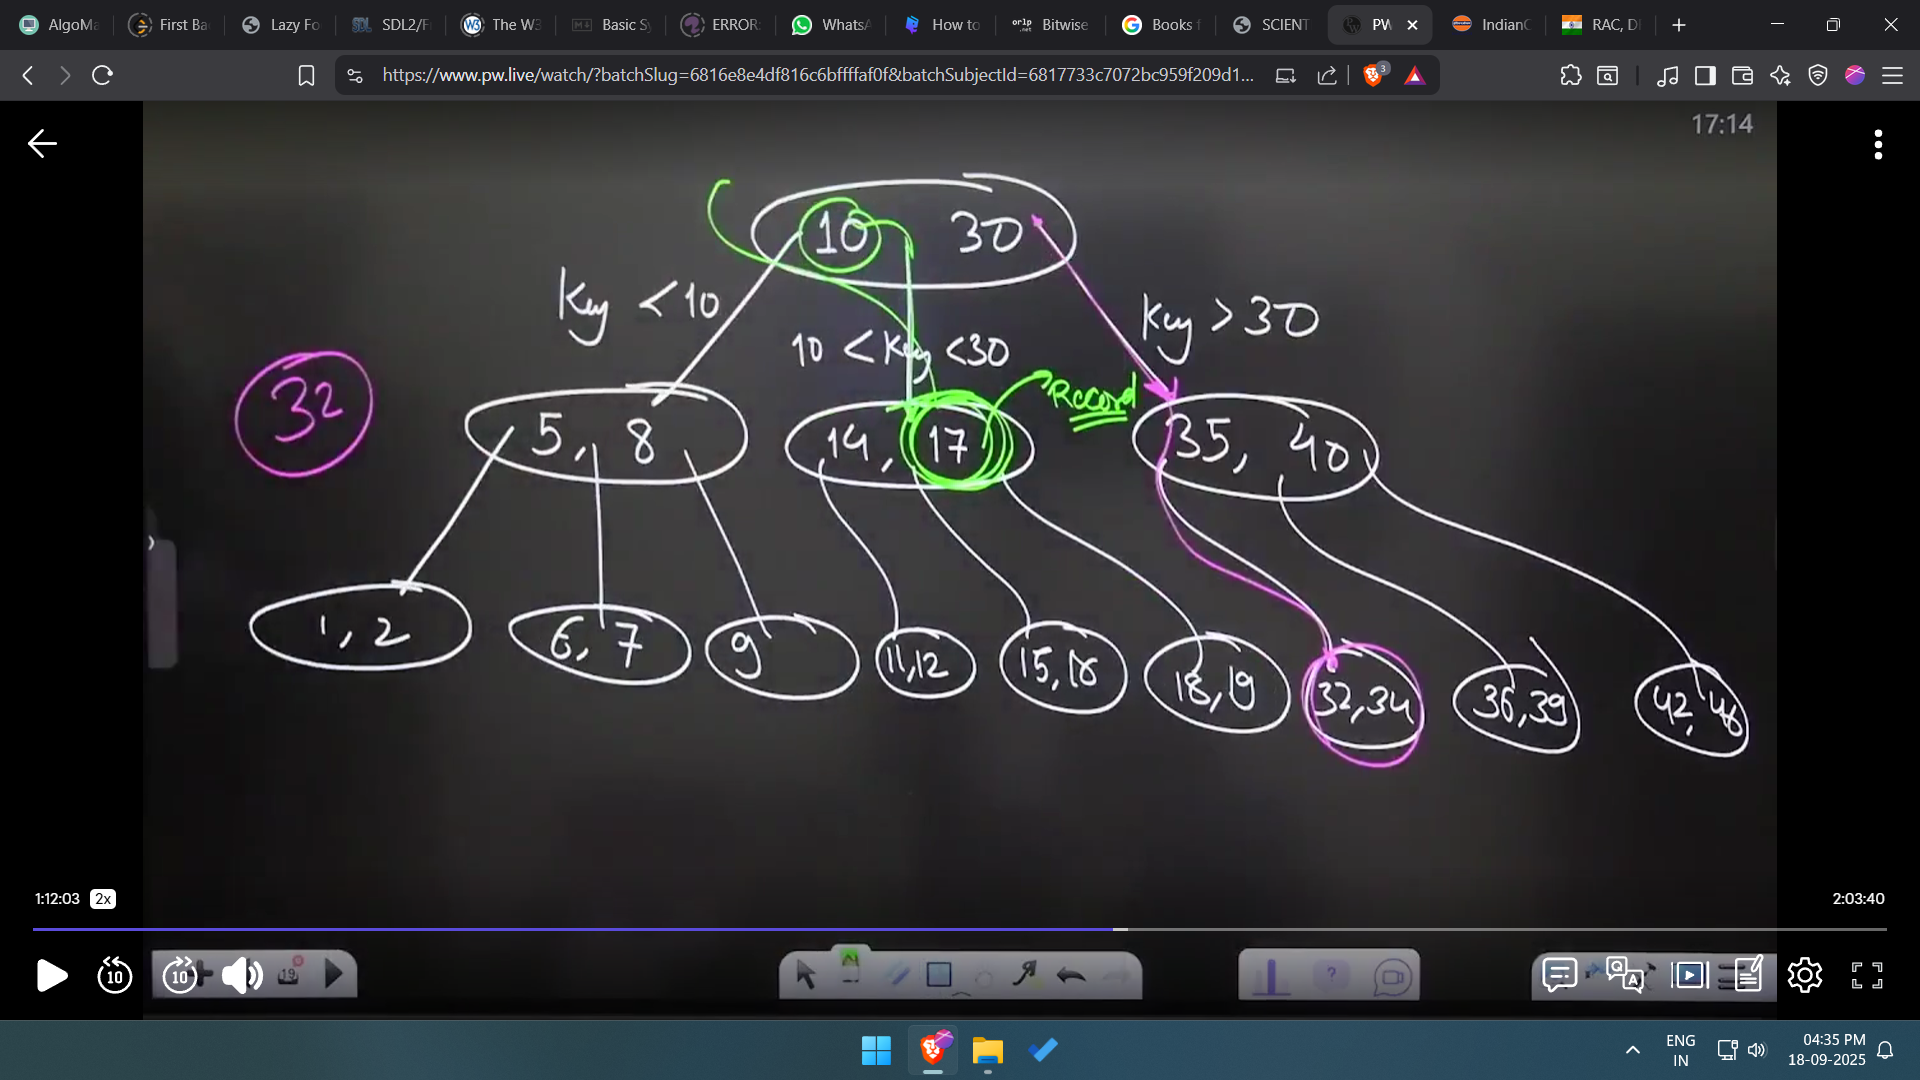 AlgoMa
First Ba
Lazy Fo
SDL2/F
The W3
Basic Sy
ERROR:
WhatsA
How to
Bitwise
Books f
SCIENT
PW
IndianC
RAC, D
https://www.pw.live/watch/?batchSlug=6816e8e4df816c6bffffaf0f&batchSubjectId=6817733c7072bc959f209d1...
3
17:14
10 30
Key <10
10 < Key <30
Key >30
32
Record
5, 8
14, 17
35, 40
1, 2
6, 7
9
11,12
15,16
18,19
32,34
36,39
42,48
1:12:03 2x
2:03:40
10
10
19
ENG
IN
04:35 PM
18-09-2025